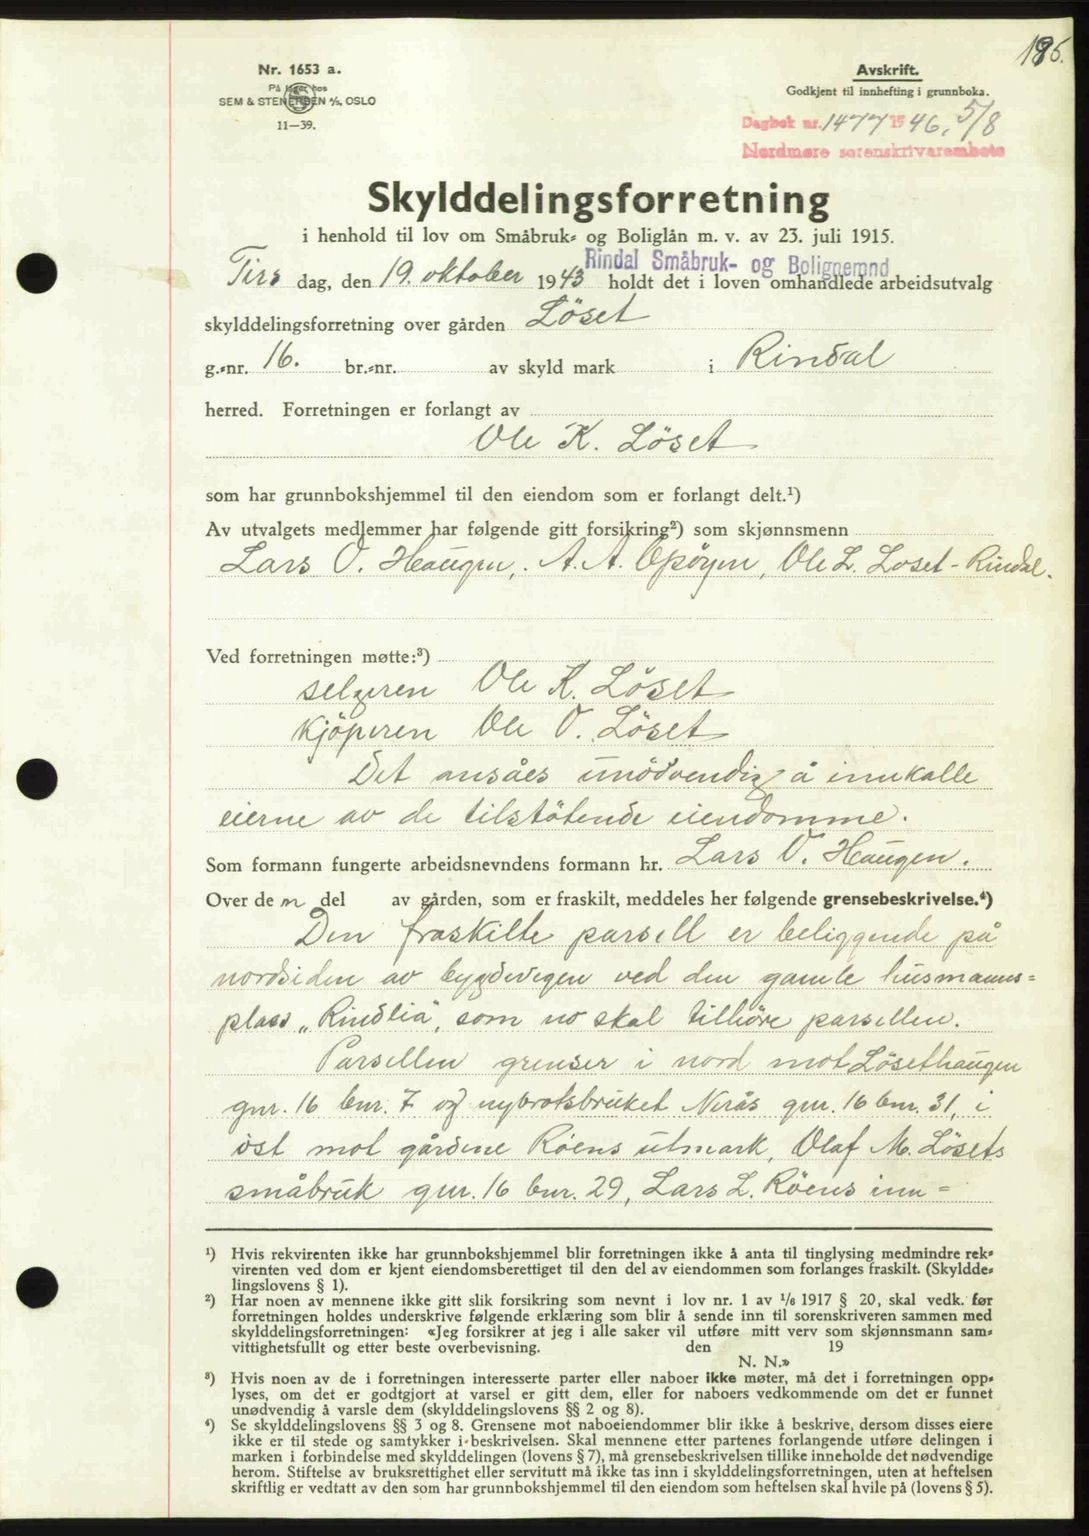 195.
Nr. 1653 a.
På lager hos
SEM & STENERSEN A/S, OSLO
11—39.
Avskrift.
Godkjent til innhefting i grunnboka.
Dagbok nr. 1477 1946, 5/8
Nordmøre sorenskrivarembete
Skylddelingsforretning
i henhold til lov om Småbruk- og Boliglån m. v. av 23. juli 1915.
Rindal Småbruk- og Bolignemnd
Tirs dag, den 19. oktober 1943 holdt det i loven omhandlede arbeidsutvalg
skylddelingsforretning over gården Löset
g.-nr. 16. br.-nr. av skyld mark i Rindal
herred. Forretningen er forlangt av
Ole K. Löset
som har grunnbokshjemmel til den eiendom som er forlangt delt.¹)
Av utvalgets medlemmer har følgende gitt forsikring²) som skjønnsmenn
Lars O. Haugen, A. A. Opöyen, Ole L. Loset - Rindal.
Ved forretningen møtte:³)
selgeren Ole K. Löset
kjöperen Ole O. Löset
Det ansåes unödvendig å innkalle
eierne av de tilstötende eiendomme.
Som formann fungerte arbeidsnevndens formann hr. Lars O. Haugen.
Over den del av gården, som er fraskilt, meddeles her følgende grensebeskrivelse.⁴)
Den fraskilte parsell er beliggende på
nordsiden av bygdevegen ved den gamle husmanns=
plass „Rindlia", som no skal tilhöre parsellen.
Parsellen grenser i nord mot Lösethaugen
gnr. 16 bnr. 7 og nybrotsbruket Nerås gnr. 16 bnr. 31, i
öst mot gårdene Röens utmark, Olaf M. Lösets
småbruk gnr. 16 bnr. 29, Lars L. Röens inn=
¹) Hvis rekvirenten ikke har grunnbokshjemmel blir forretningen ikke å anta til tinglysing medmindre rek-
virenten ved dom er kjent eiendomsberettiget til den del av eiendommen som forlanges fraskilt. (Skyldde-
lingslovens § 1).
²) Har noen av mennene ikke gitt slik forsikring som nevnt i lov nr. 1 av ¹/₆ 1917 § 20, skal vedk. før
forretningen holdes underskrive følgende erklæring som blir å sende inn til sorenskriveren sammen med
skylddelingsforretningen: «Jeg forsikrer at jeg i alle saker vil utføre mitt verv som skjønnsmann sam-
vittighetsfullt og etter beste overbevisning. den 19
N. N.»
³) Hvis noen av de i forretningen interesserte parter eller naboer ikke møter, må det i forretningen opp-
lyses, om det er godtgjort at varsel er gitt dem, eller for naboers vedkommende om det er funnet
unødvendig å varsle dem (skylddelingslovens §§ 2 og 8).
⁴) Se skylddelingslovens §§ 3 og 8. Grensene mot naboeiendommer blir ikke å beskrive, dersom disses eiere
ikke er til stede og samtykker i beskrivelsen. Skal mennene etter partenes forlangende utføre delingen i
marken i forbindelse med skylddelingen (lovens § 7), må grensebeskrivelsen tillike inneholde det nødvendige
herom. Stiftelse av bruksrettighet eller servitutt må ikke tas inn i skylddelingsforretningen, uten at heftelsen
skriftlig er vedtatt av den som har grunnbokshjemmel til den eiendom som heftelsen skal hvile på (lovens § 5).